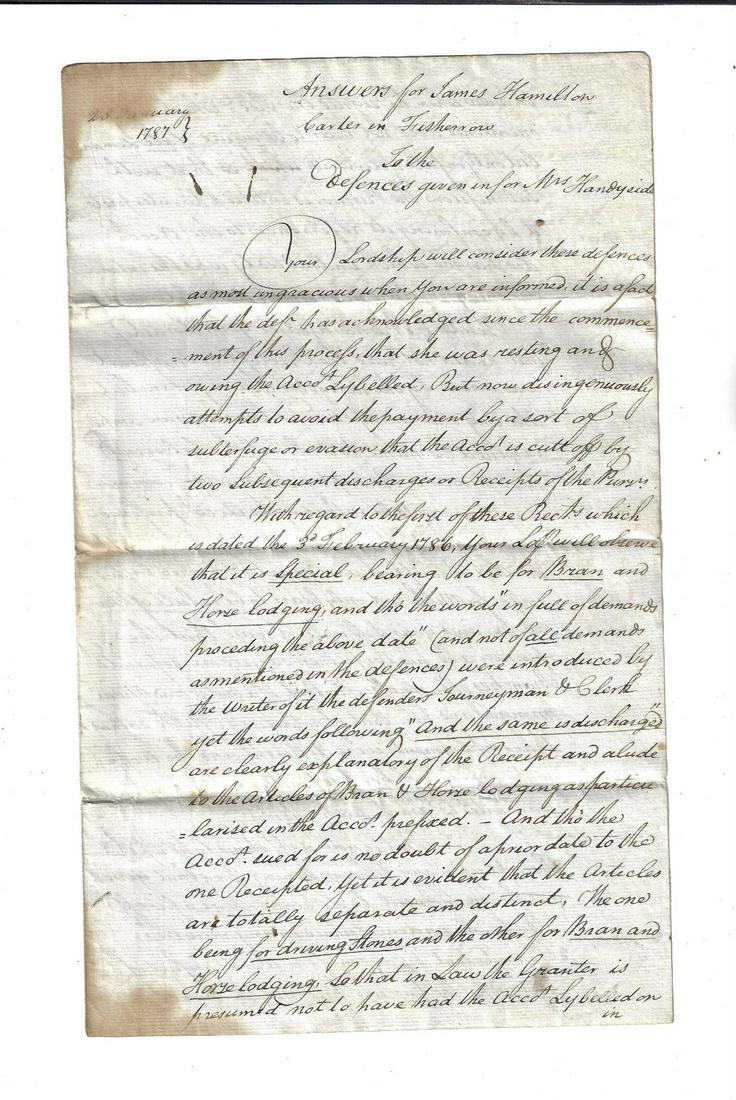 1787
Answers for James Hamilton
Carter in Fisherrow
To the
Defences given in for Mrs Handyside
Your Lordship will consider these defences
as most ungracious when you are informed, it is a fact
that the defr. has acknowledged since the commence=
=ment of this process, that she was resting and
owing the Accot. Lybelled, But now disingenuously
attempts to avoid the payment by a sort of
subterfuge or evasion that the Accot. is cutt off by
two subsequent discharges or Receipts of the Pursrs.
With regard to the first of these Rects. which
is dated the 3d. February 1786, Your Lop will observe
that it is Special, bearing to be for Bran and
Horse lodging, and tho the words "in full of demands
preceeding the above date" (and not of all demands
as mentioned in the defences) were introduced by
the writer of it the defenders Journeyman & Clerk
yet the words following "And the same is discharged"
are clearly explanatory of the Receipt and alude
to the Articles of Bran & Horse lodging as particu
=larised in the Accot. prefixed. – And tho the
Accot. sued for is no doubt of a prior date to the
one Receipted, Yet it is evident that the Articles
are totally separate and distinct, The one
being for driving Stones and the other for Bran and
Horse lodging, So that in Law the Granter is
presumed not to have had the Accot. Lybelled on
in